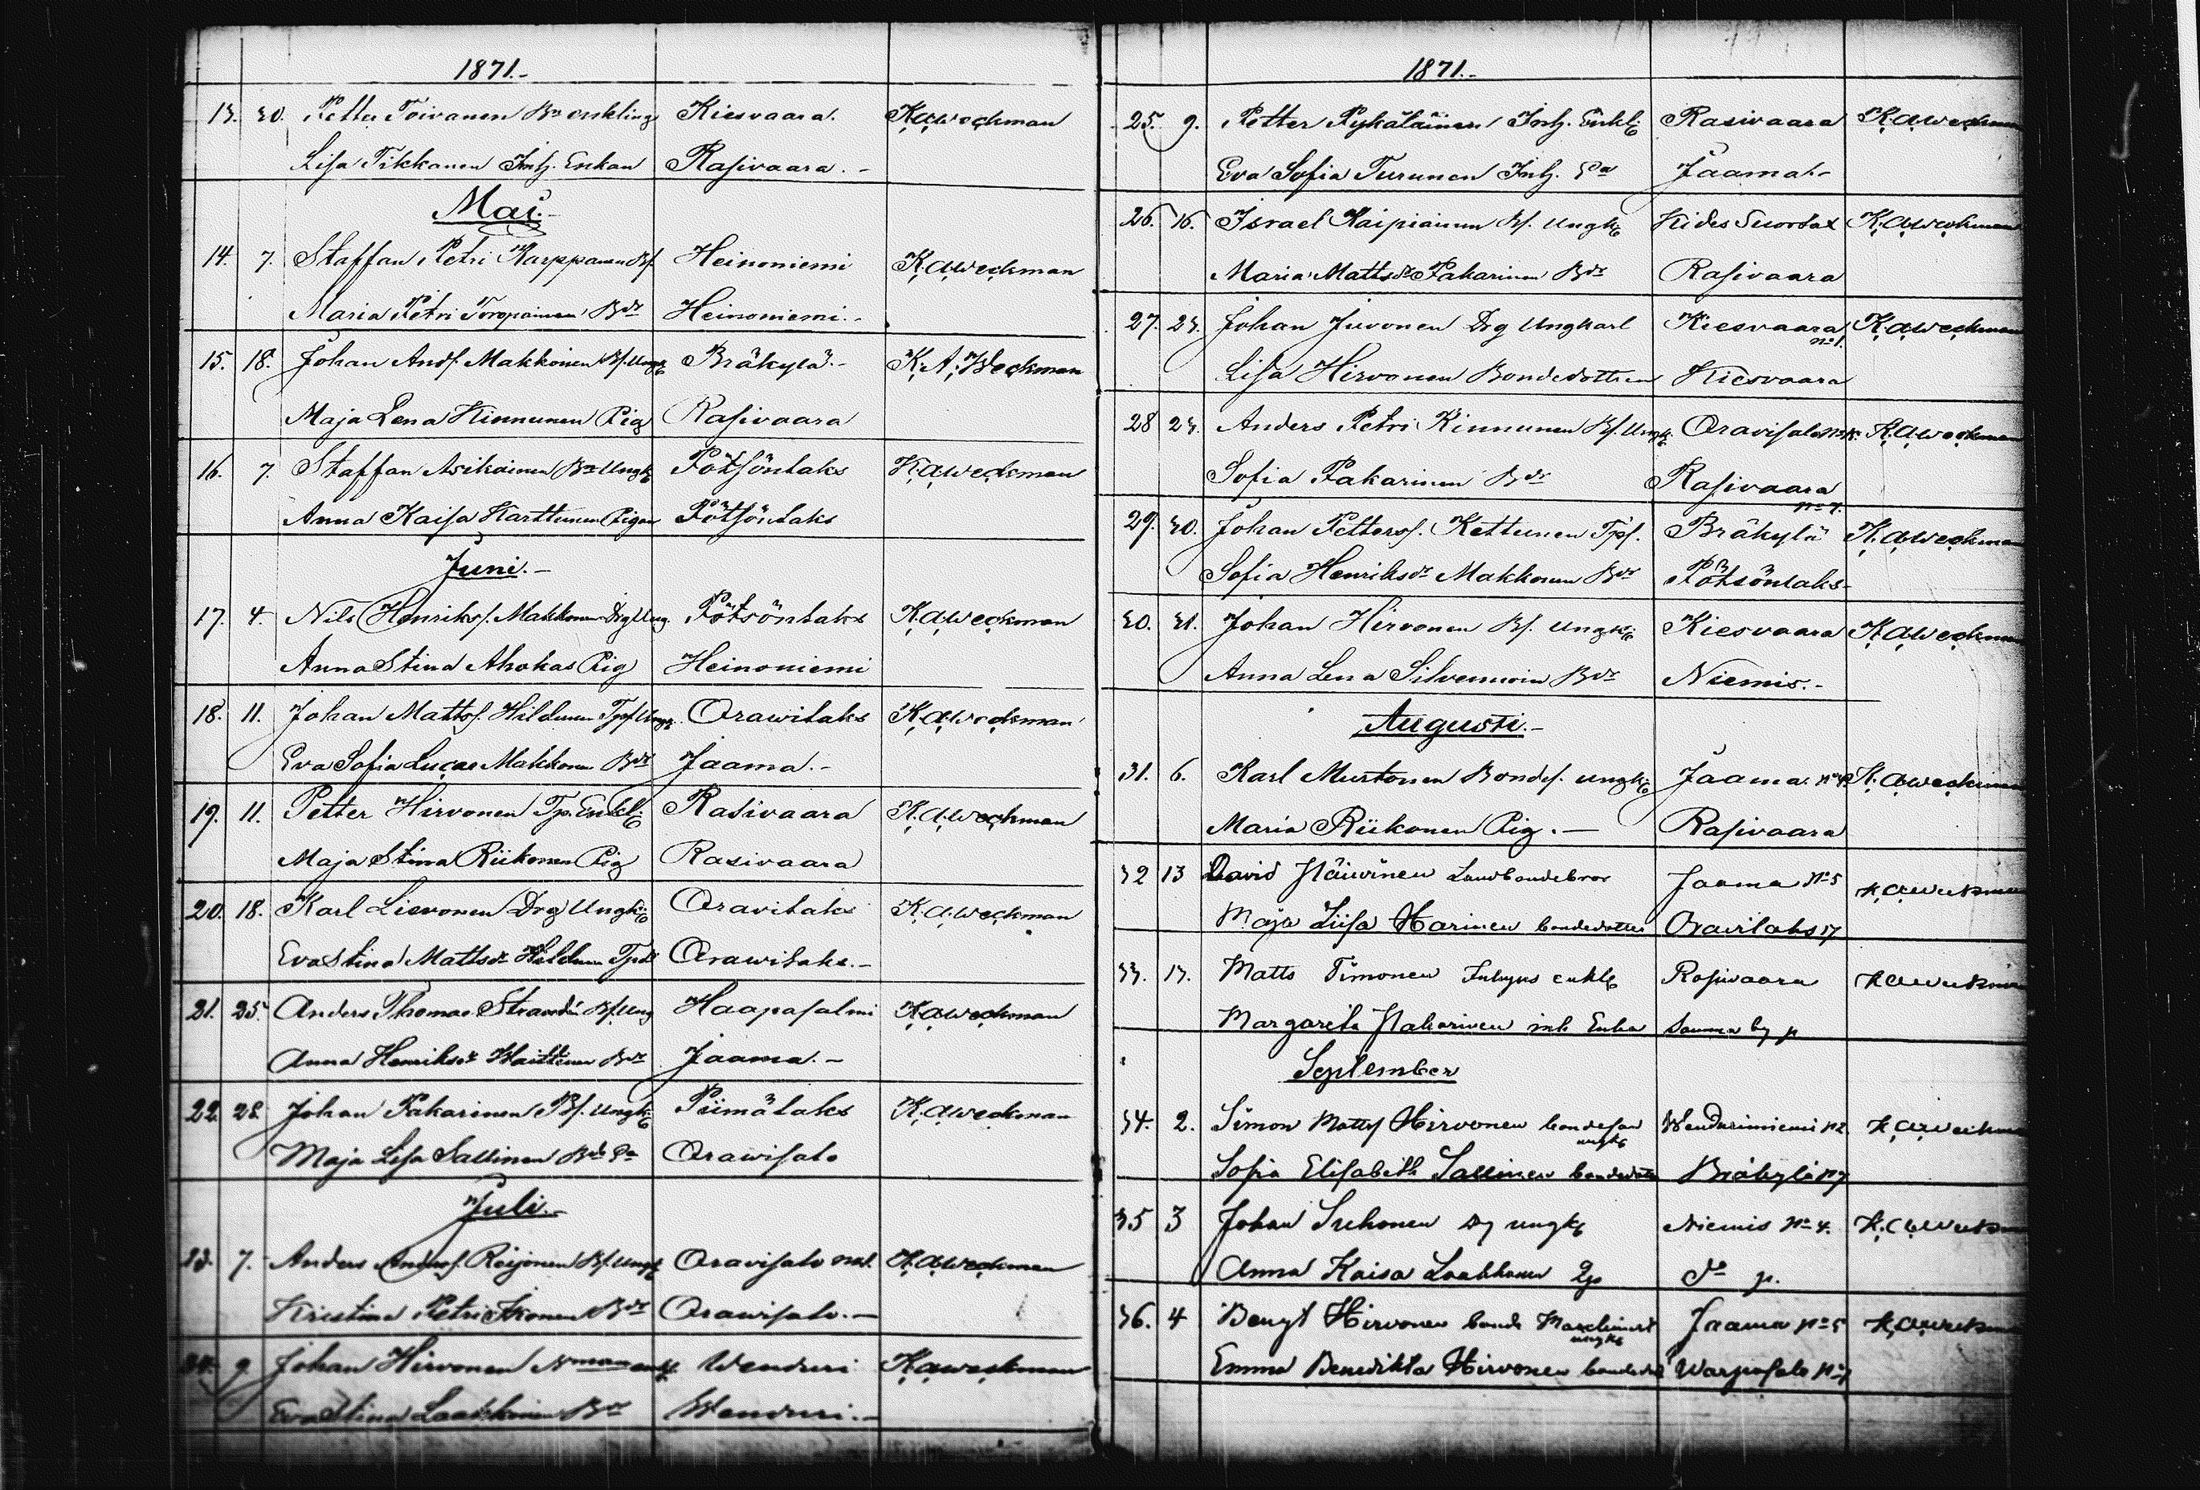 1871.-
13. 30. Petter Toivanen Bo enkling Kiesvaara. K.A.Weckman
Lisa Tikkanen Inh. Enkan Rasivaara.-
Mai.-
14. 7. Staffan Petri Karppanen Bs. Heinoniemi K.A.Weckman
Maria Petri Toropainen Bdr Heinoniemi.-
15. 18. Johan Andf. Makkonen Bf. Ungk Bräkylä.- K.A.Weckman
Maja Lena Kinnunen Pig Rasivaara
16. 7. Staffan Asikainen Bo Ungk Pötsönlaks K.A.Weckman
Anna Kaisa Karttunen Pigan Pötsönlaks
Juni.-
17. 4. Nils Henriksf. Makkonen Drg Ung Pötsönlaks K.A.Weckman
Anna Stina Ahokas Pig Heinoniemi
18. 11. Johan Mattsf. Hildunen Tpf Ungk. Orawilaks K.A.Weckman
Eva Sofia Lucas Makkonen Bdr Jaama.-
19. 11. Petter Hirvonen Tp. Enkl. Rasivaara K.A.Weckman
Maja Stina Riikonen Pig Rasivaara
20. 18. Karl Lievonen Drg Ungk Oravilaks K.A.Weckman
Eva Stina Mattsdr Hildunen Tpdr Orawilaks.-
21. 25. Anders Thomas Strandén Bf. Ung Haapasalmi K.A.Weckman
Anna Henriksdr Waittinen Bdr Jaama.-
22. 22. Johan Pakarinen Bf. Ungk Piimälaks K.A.Weckman
Maja Lisa Sallinen Bdr Orawisalo
Juli.-
23. 7. Anders Andersf. Reijonen Bf. Ungk Oravisalo K.A.Weckman
Kristina Petri Ikonen Bdr Orawisalo.-
24. 9 Johan Hirvonen Wenduri K.A.Weckman
Eva Stina Laakkonen Bdr Wenduri.-
1871.-
25. 9. Petter Pykäläinen Inh. Enkl. Rasivaara K.A.Weckman
Eva Sofia Turunen Inh. Jaama.-
26. 16. Israel Kaipiainen Bf. Ungk Kides Suorlax K.A.Weckman
Maria Mattsdr Pakarinen Bdr Rasivaara
27. 23. Johan Juvonen Drg Ungkarl Kiesvaara no 1. K.A.Weckman
Lisa Hirvonen Bondedottren Kiesvaara
28 23. Anders Petri Kinnunen Bf. Ungk. Oravisalo K.A.Weckman
Sofia Pakarinen Bdr Rasivaara
29. 30. Johan Pettersf. Kettunen Tpf. Bräkylä K.A.Weckman
Sofia Henriksdr Makkonen Bdr Pötsönlaks-
30. 31. Johan Hirvonen Bf. Ungk. Kiesvaara K.A.Weckman
Anna Lena Silvennoin Bdr Niemis.-
Augusti.-
31. 6. Karl Murtonen Bondef. ungk. Jaama K.A.Weckman
Maria Riikonen Pig.- Rasivaara
32 13 David Päivinen Landbondebror Jaama No 5 K.A.Weckman
Maja Liisa Harinen bondedotter Oravilaks 17
33. 13. Matts Timonen Inhyses enkl Rasivaara K.A.Weckman
Margareta Pakarinen inh Enka Samma by
September
34. 2. Simon Mattsf Hirvonen bondeson ungk Wenduriniemi K.A.Weckman
Sofia Elisabeth Sallinen bondedotr Bräkylä
35 3 Johan Suhonen Dg ungk Niemis No 4. K.A.Weckman
Anna Kaisa Laakkonen do
36. 4 Bengt Hirvonen bonde ungk Jaama No 5 K.A.Weckman
Emma Benedikta Hirvonen bondedr Warpasalo